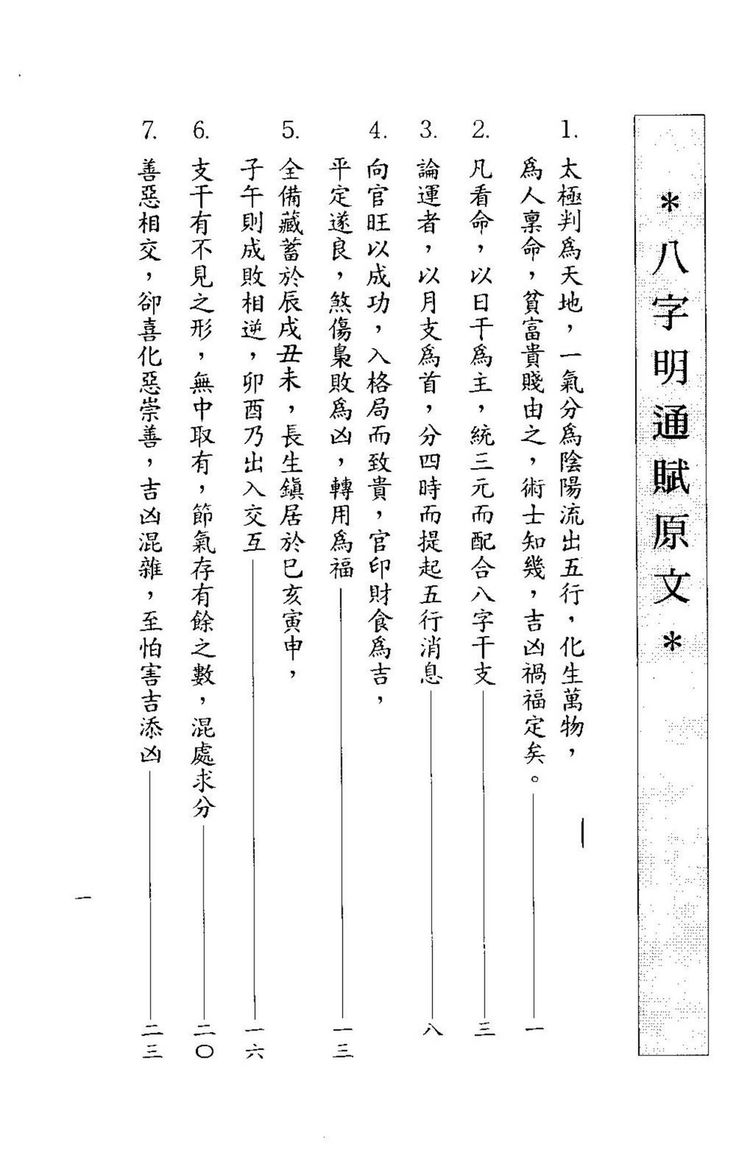 *八字明通賦原文*
1. 太極判為天地，一氣分為陰陽流出五行，化生萬物，
為人稟命，貧富貴賤由之，術士知幾，吉凶禍福定矣。——一
2. 凡看命，以日干為主，統三元而配合八字干支——三
3. 論運者，以月支為首，分四時而提起五行消息——八
4. 向官旺以成功，入格局而致貴，官印財食為吉，
平定遂良，煞傷梟敗為凶，轉用為福——一三
5. 全備藏蓄於辰戌丑未，長生鎮居於巳亥寅申，
子午則成敗相逆，卯酉乃出入交互——一六
6. 支干有不見之形，無中取有，節氣存有餘之數，混處求分——二〇
7. 善惡相交，卻喜化惡崇善，吉凶混雜，至怕害吉添凶——二三
一